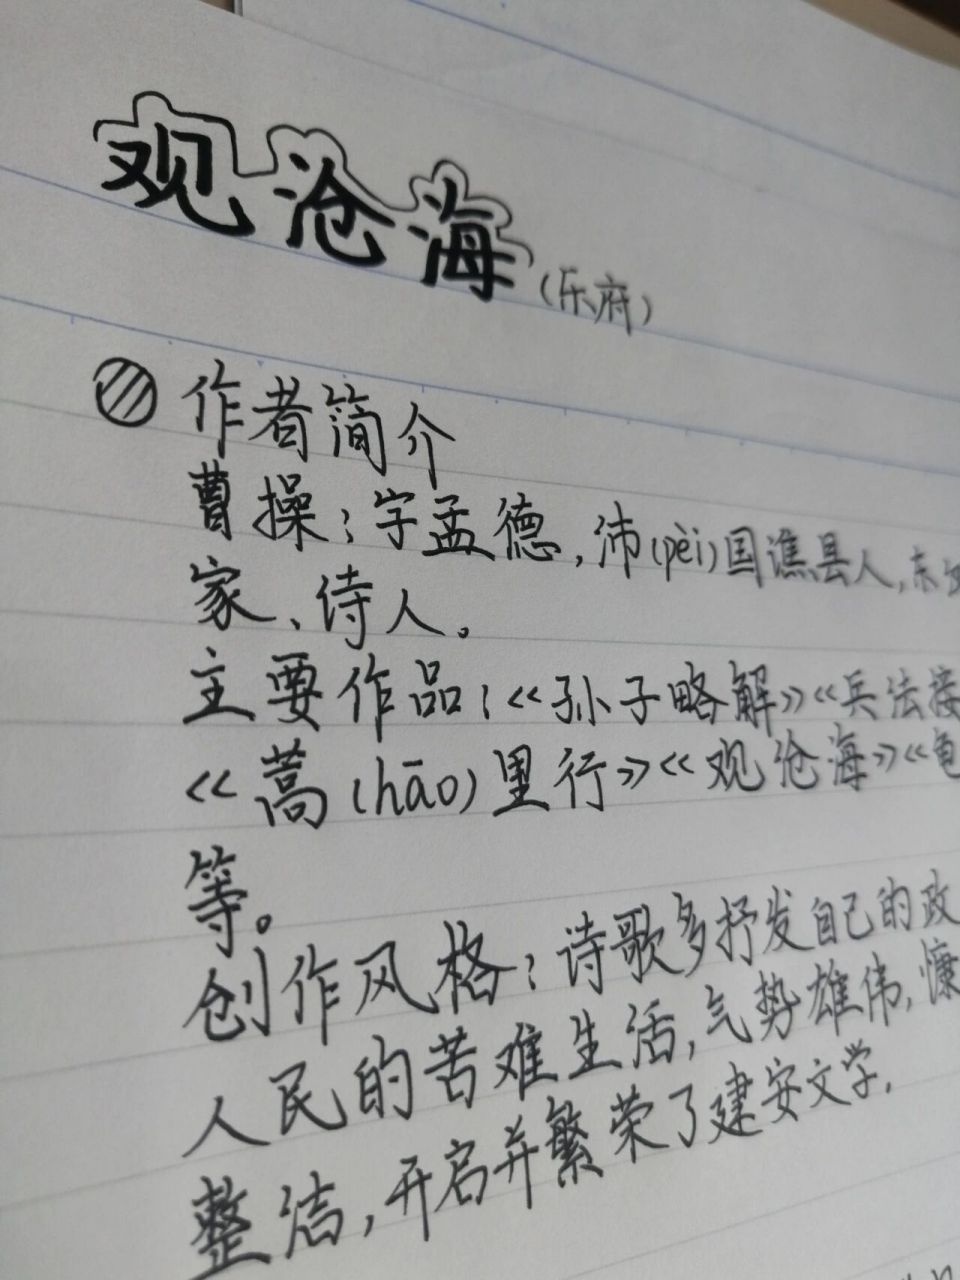 观沧海(乐府)
作者简介
曹操:字孟德,沛(pèi)国谯县人,东
家、诗人。
主要作品:《孙子略解》《兵法接
《蒿(hāo)里行》《观沧海》《龟
等。
创作风格:诗歌多抒发自己的政
人民的苦难生活,气势雄伟,慷
整洁,开启并繁荣了建安文学.